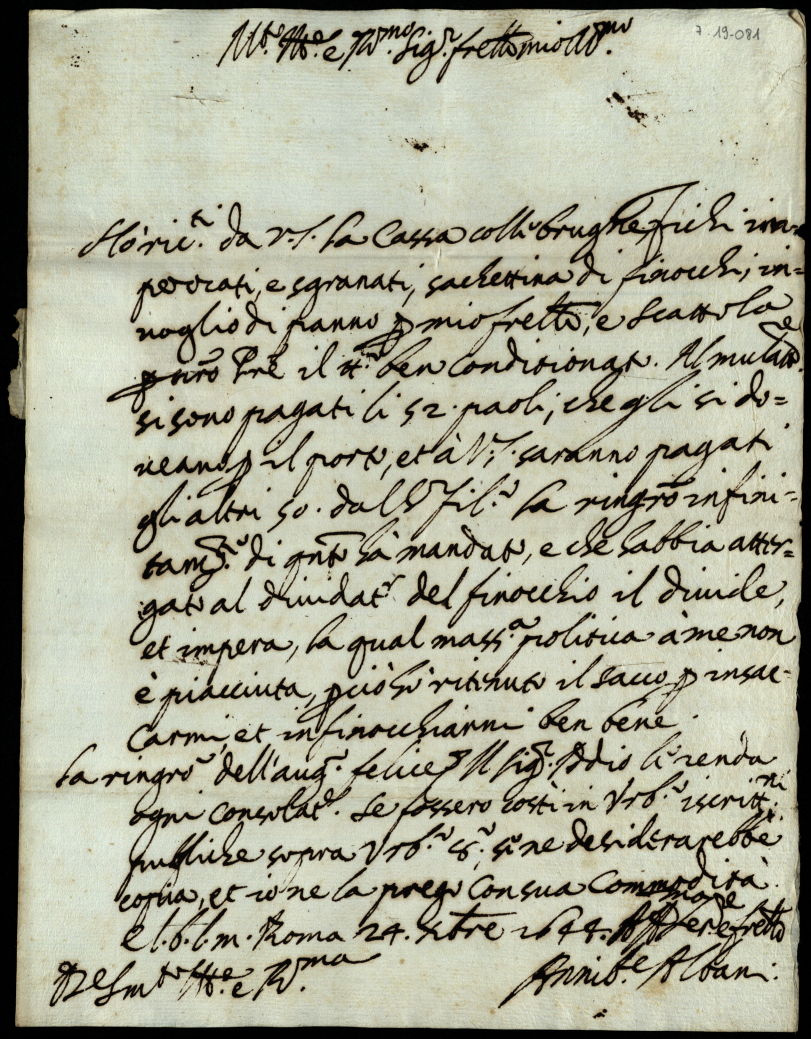 7-19-081
M.to Ill.re e R.mo Sig.r fratello mio oss.mo
Hò ric.ti da V.S. la Cassa colli brugne, fichi im=
peciati, e sgranati, sachettina di finocchi, in=
voglio di panno p mio frello, e Scattola
p il ben conditionato. Al mulatt.e
si sono pagati li 52. paoli, che gli si do=
veano p il porto, et à V.S. saranno pagati
gli altri 50. dal S.r Fil.o la ringrō infini=
tam.te di qnto hà mandato, e che habbia atter=
gato al del finocchio il divide,
et impera, la qual mass.a politica à me non
è piacciuta, pciò hò ritenuto il sacco p insac=
carmi, et infinocchiarmi ben bene.
La ringro dell'aug.o felice, Il Sig.r Iddio li renda
ogni consolat.e. Se fossero costì in Urb.o iscritt.ni
publiche sopra Urb.o se ne desiderarebbe
copia, et io ne la prego con sua commodità
e l. b. l. m. Roma 24. Xbre 1644. Aff.
Di V.S. m.to Ill.re e R.ma
Annib.e Albani.